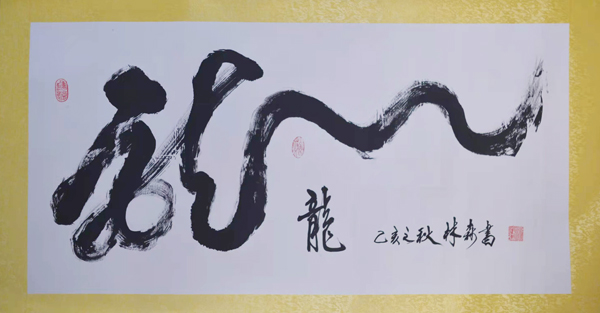 龍
龍
乙亥之秋 森書